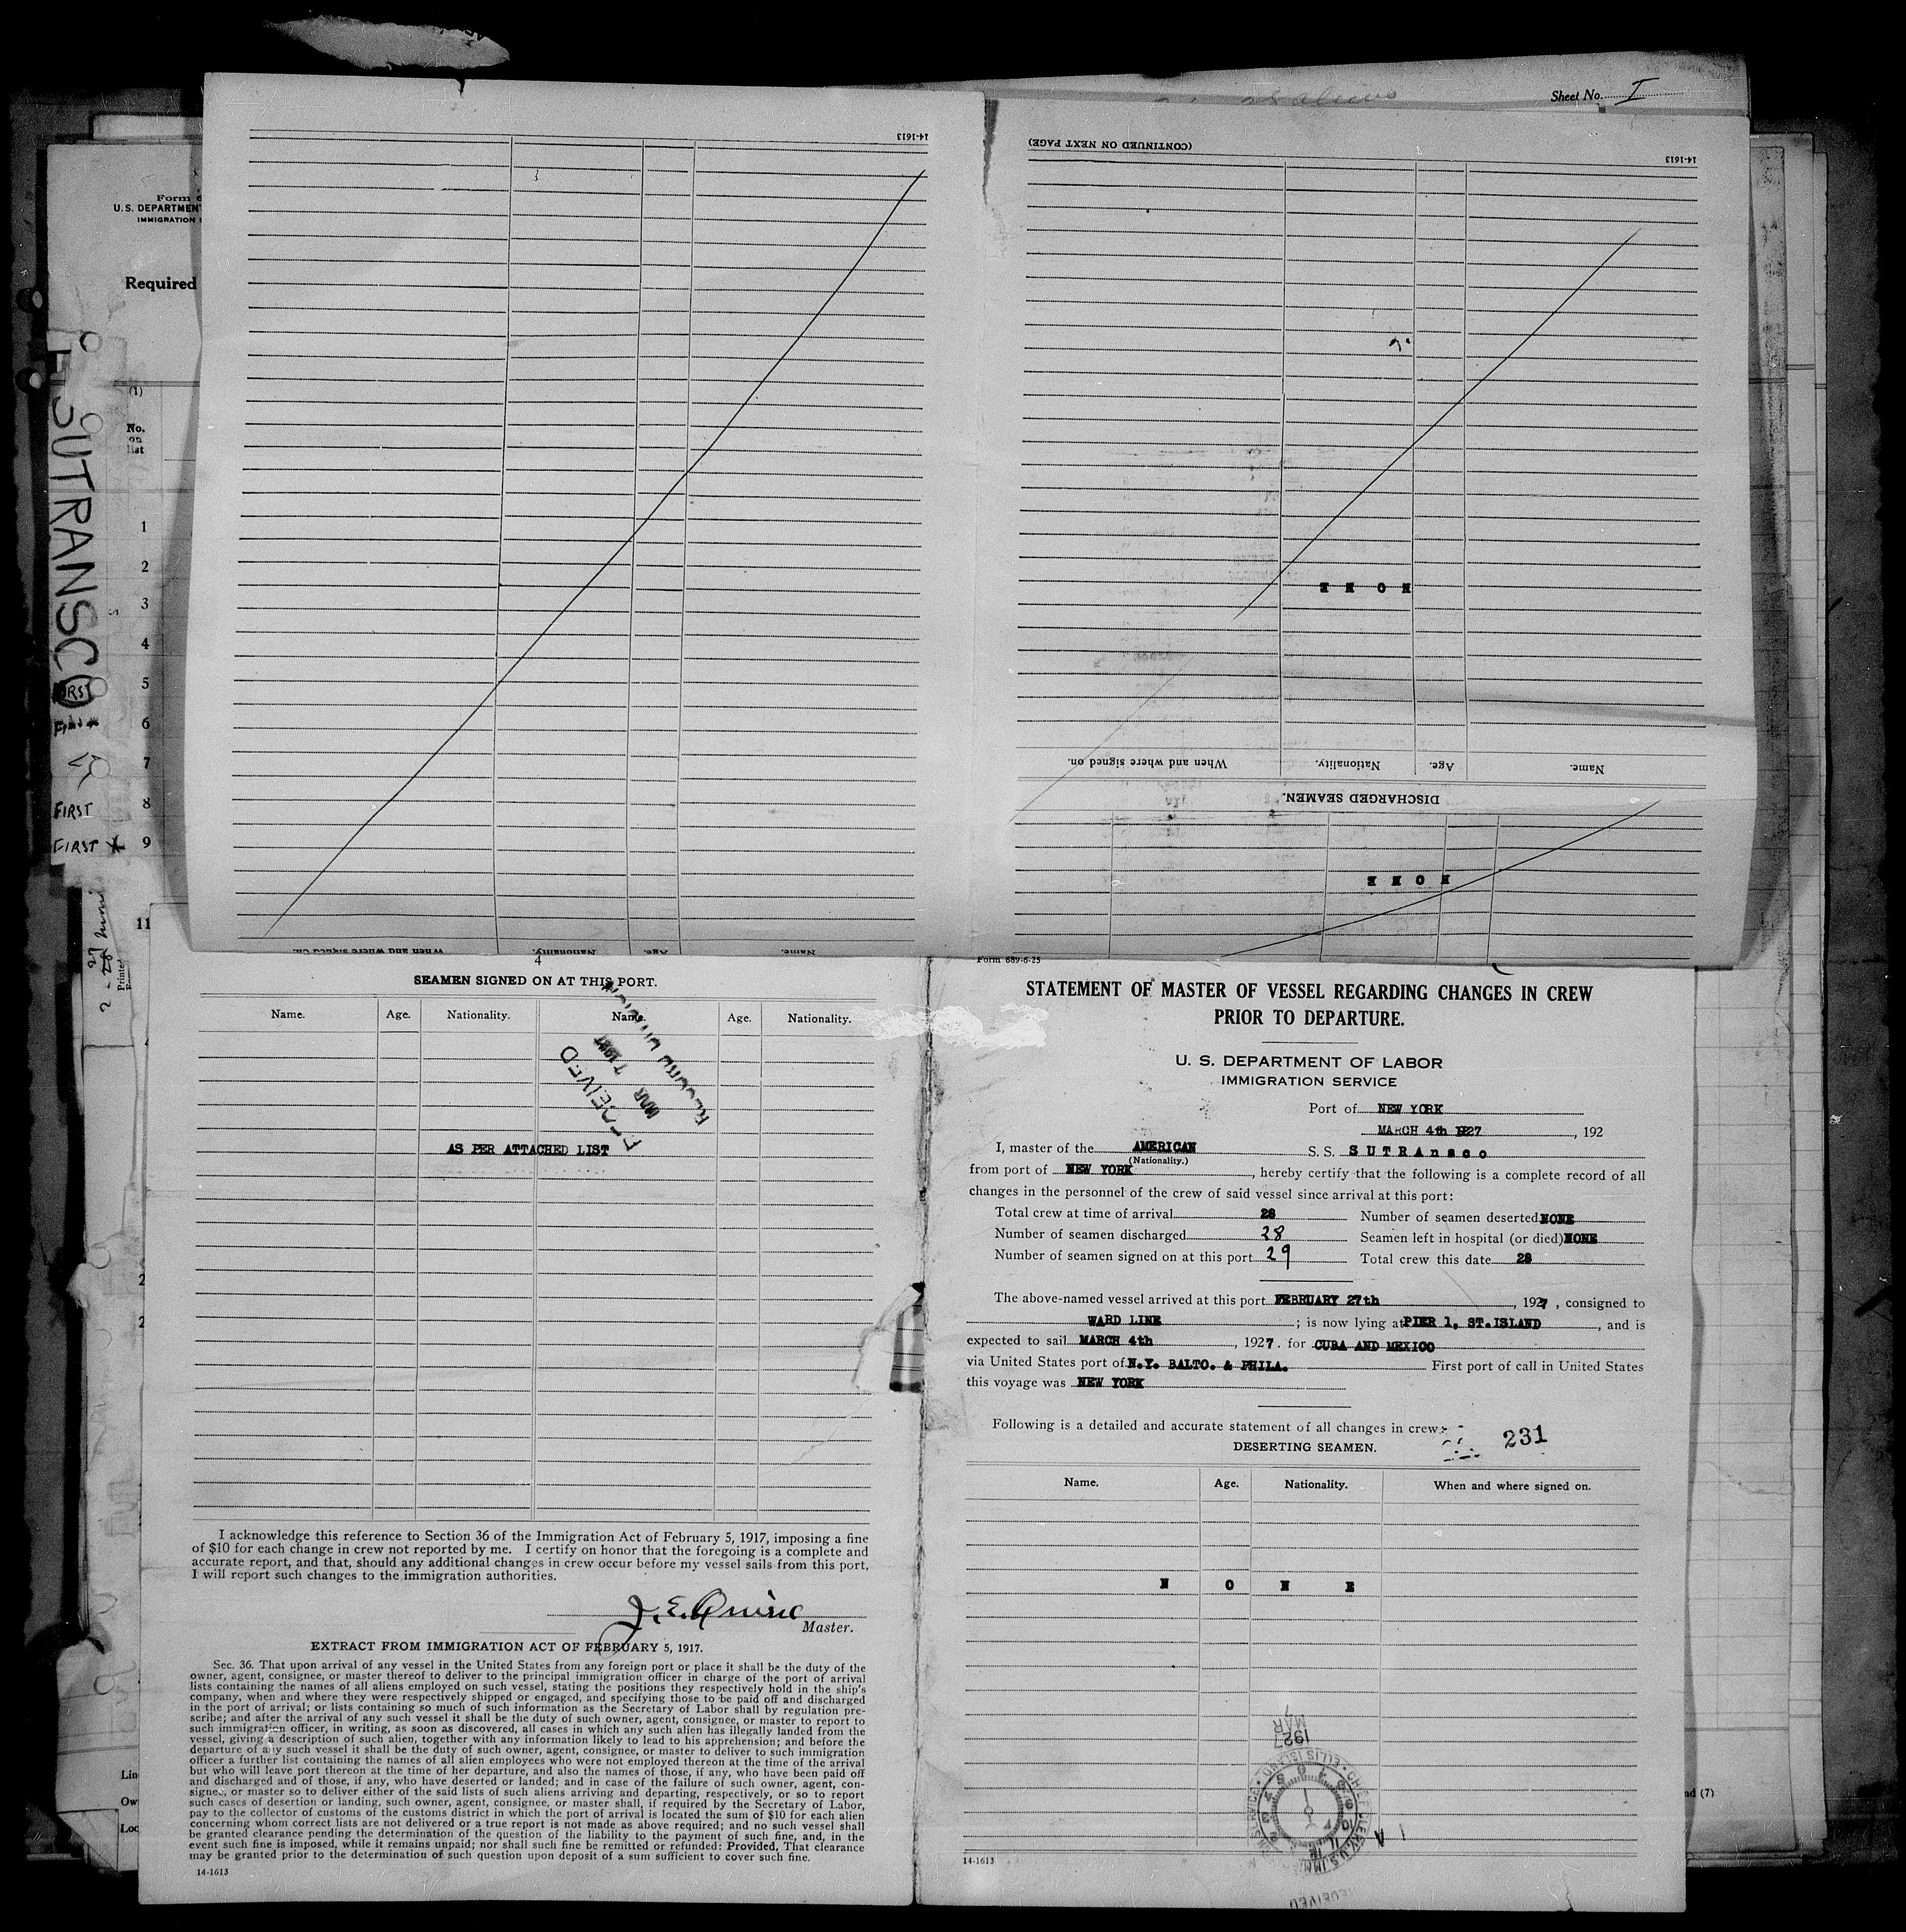 Sheet No. I
Form 6
U. S. DEPARTMENT
IMMIGRATION
Required
(1)
No.
on
list
SUTRANSCO
1
2
3
4
5
6
7
8
9
11
FIRST
FIRST
14-1613
When and where signed on.
Nationality.
Age.
Name.
(CONTINUED ON NEXT PAGE)
14-1613
NONE
When and where signed on.
Nationality.
Age.
Name.
DISCHARGED SEAMEN.
NONE
4
SEAMEN SIGNED ON AT THIS PORT.
Name. Age. Nationality. Name. Age. Nationality.
RECEIVED
MAR 7 1927
RECORD DIVISION
AS PER ATTACHED LIST
I acknowledge this reference to Section 36 of the Immigration Act of February 5, 1917, imposing a fine
of $10 for each change in crew not reported by me. I certify on honor that the foregoing is a complete and
accurate report, and that, should any additional changes in crew occur before my vessel sails from this port,
I will report such changes to the immigration authorities.
Master.
EXTRACT FROM IMMIGRATION ACT OF FEBRUARY 5, 1917.
Sec. 36. That upon arrival of any vessel in the United States from any foreign port or place it shall be the duty of the
owner, agent, consignee, or master thereof to deliver to the principal immigration officer in charge of the port of arrival
lists containing the names of all aliens employed on such vessel, stating the positions they respectively hold in the ship's
company, when and where they were respectively shipped or engaged, and specifying those to be paid off and discharged
in the port of arrival; or lists containing so much of such information as the Secretary of Labor shall by regulation pre-
scribe; and after the arrival of any such vessel it shall be the duty of such owner, agent, consignee, or master to report to
such immigration officer, in writing, as soon as discovered, all cases in which any such alien has illegally landed from the
vessel, giving a description of such alien, together with any information likely to lead to his apprehension; and before the
departure of any such vessel it shall be the duty of such owner, agent, consignee, or master to deliver to such immigration
officer a further list containing the names of all alien employees who were not employed thereon at the time of the arrival
but who will leave port thereon at the time of her departure, and also the names of those, if any, who have been paid off
and discharged and of those, if any, who have deserted or landed; and in case of the failure of such owner, agent, con-
signee, or master so to deliver either of the said lists of such aliens arriving and departing, respectively, or so to report
such cases of desertion or landing, such owner, agent, consignee, or master shall, if required by the Secretary of Labor,
pay to the collector of customs of the customs district in which the port of arrival is located the sum of $10 for each alien
concerning whom correct lists are not delivered or a true report is not made as above required; and no such vessel shall
be granted clearance pending the determination of the question of the liability to the payment of such fine, and, in the
event such fine is imposed, while it remains unpaid; nor shall such fine be remitted or refunded: Provided, That clearance
may be granted prior to the determination of such question upon deposit of a sum sufficient to cover such fine.
14-1613
Form 689-6-25
STATEMENT OF MASTER OF VESSEL REGARDING CHANGES IN CREW
PRIOR TO DEPARTURE.
U. S. DEPARTMENT OF LABOR
IMMIGRATION SERVICE
Port of NEW YORK
MARCH 4th 1927, 192
I, master of the AMERICAN S. S. SUTRAnsco
(Nationality.)
from port of NEW YORK, hereby certify that the following is a complete record of all
changes in the personnel of the crew of said vessel since arrival at this port:
Total crew at time of arrival 28 Number of seamen deserted NONE
Number of seamen discharged 28 Seamen left in hospital (or died) NONE
Number of seamen signed on at this port 29 Total crew this date 28
The above-named vessel arrived at this port FEBRUARY 27th, 1927, consigned to
WARD LINE; is now lying at PIER 1, ST. ISLAND, and is
expected to sail MARCH 4th, 1927. for CUBA AND MEXICO
via United States port of N.Y. BALTO. & PHILA. First port of call in United States
this voyage was NEW YORK
Following is a detailed and accurate statement of all changes in crew:
231
DESERTING SEAMEN.
Name. Age. Nationality. When and where signed on.
N O N E
1927
MAR
7
14-1613
RECEIVED
nd (7)